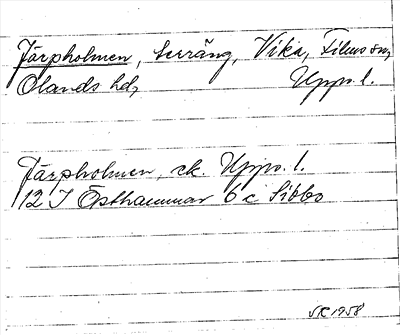 Järpholmen, terräng, Vika, Films sn,
Olands hd, Upps. l.
Järpholmen, sk. Upps. l.
12 I Östhammar 6 c Sibbo
SR 1958